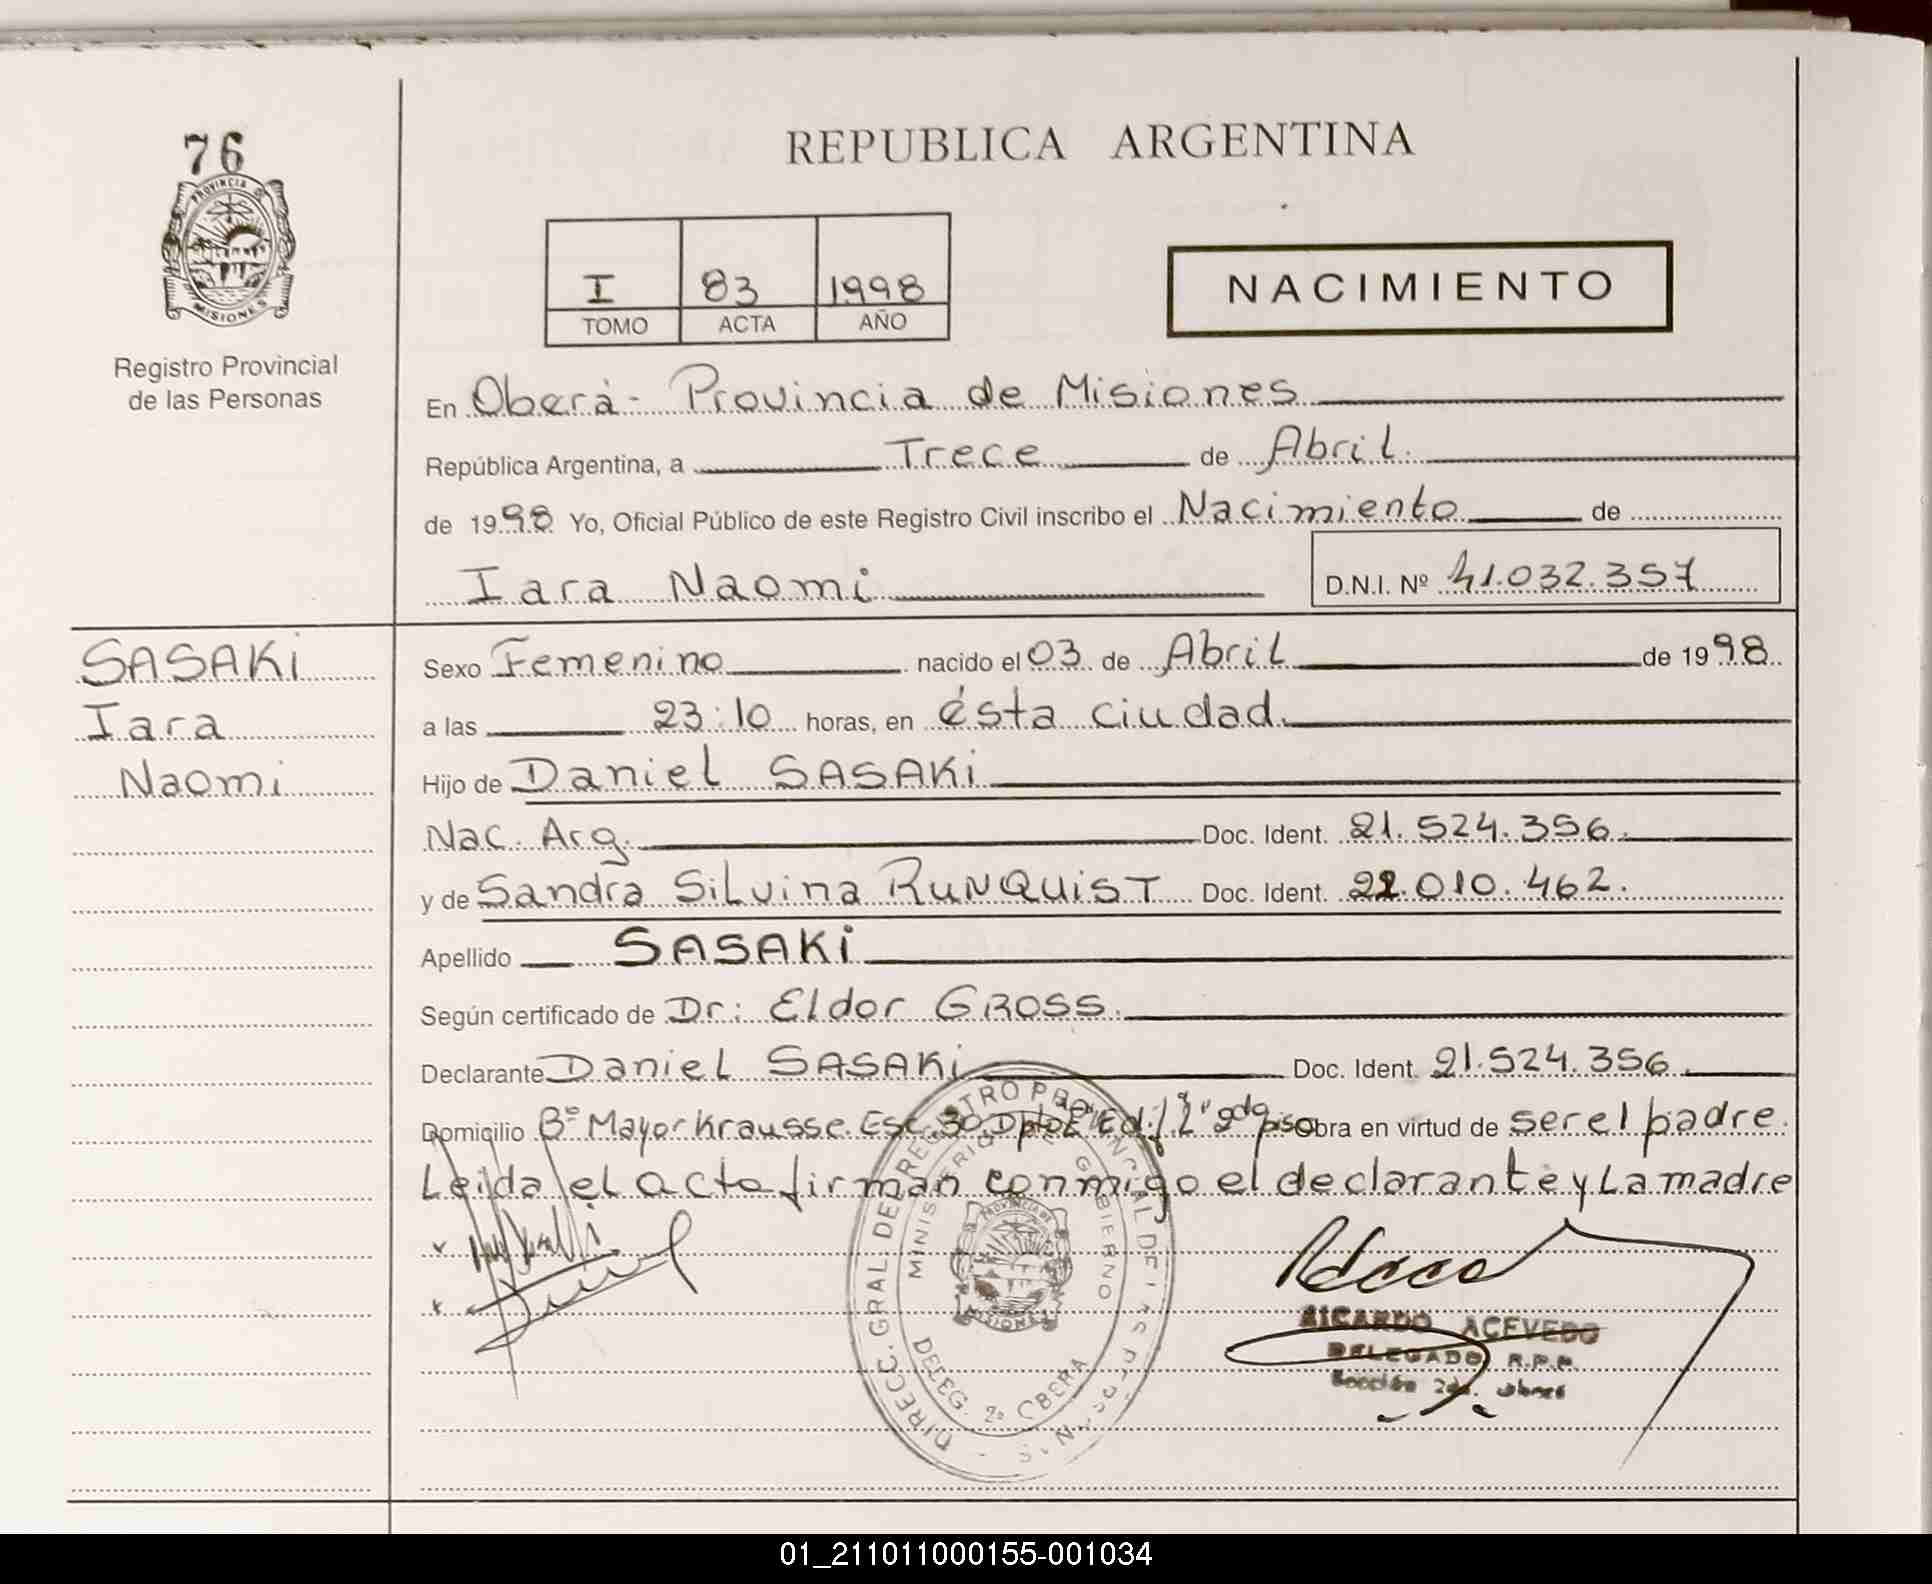 76
PROVINCIA DE
MISIONES
Registro Provincial
de las Personas
REPUBLICA ARGENTINA
I 83 1998
TOMO ACTA AÑO
NACIMIENTO
En Oberá - Provincia de Misiones
República Argentina, a Trece de Abril
de 1998 Yo, Oficial Público de este Registro Civil inscribo el Nacimiento de
Iara Naomi D.N.I. Nº 41.032.357
SASAKI
Iara
Naomi
Sexo Femenino nacido el 03 de Abril de 1998
a las 23:10 horas, en ésta ciudad.
Hijo de Daniel SASAKI
Nac. Arg. Doc. Ident. 21.524.356.
y de Sandra Silvina RUNQUIST Doc. Ident. 22.010.462.
Apellido SASAKI
Según certificado de Dr: Eldor GROSS.
Declarante Daniel SASAKI Doc. Ident. 21.524.356
Domicilio Bº Mayor Krausse. Esc. 30 Dpto "E" Ed. 2do piso obra en virtud de ser el padre.
Leida el acta firman conmigo el declarante y la madre
DIRECC. GRAL. DE REGISTRO PROVINCIAL DE LAS PERSONAS
MINISTERIO DE GOBIERNO
PROVINCIA DE
MISIONES
DELEG. 2ª OBERA
RICARDO ACEVEDO
DELEGADO R.P.P.
Sección 2da. Oberá
01_211011000155-001034